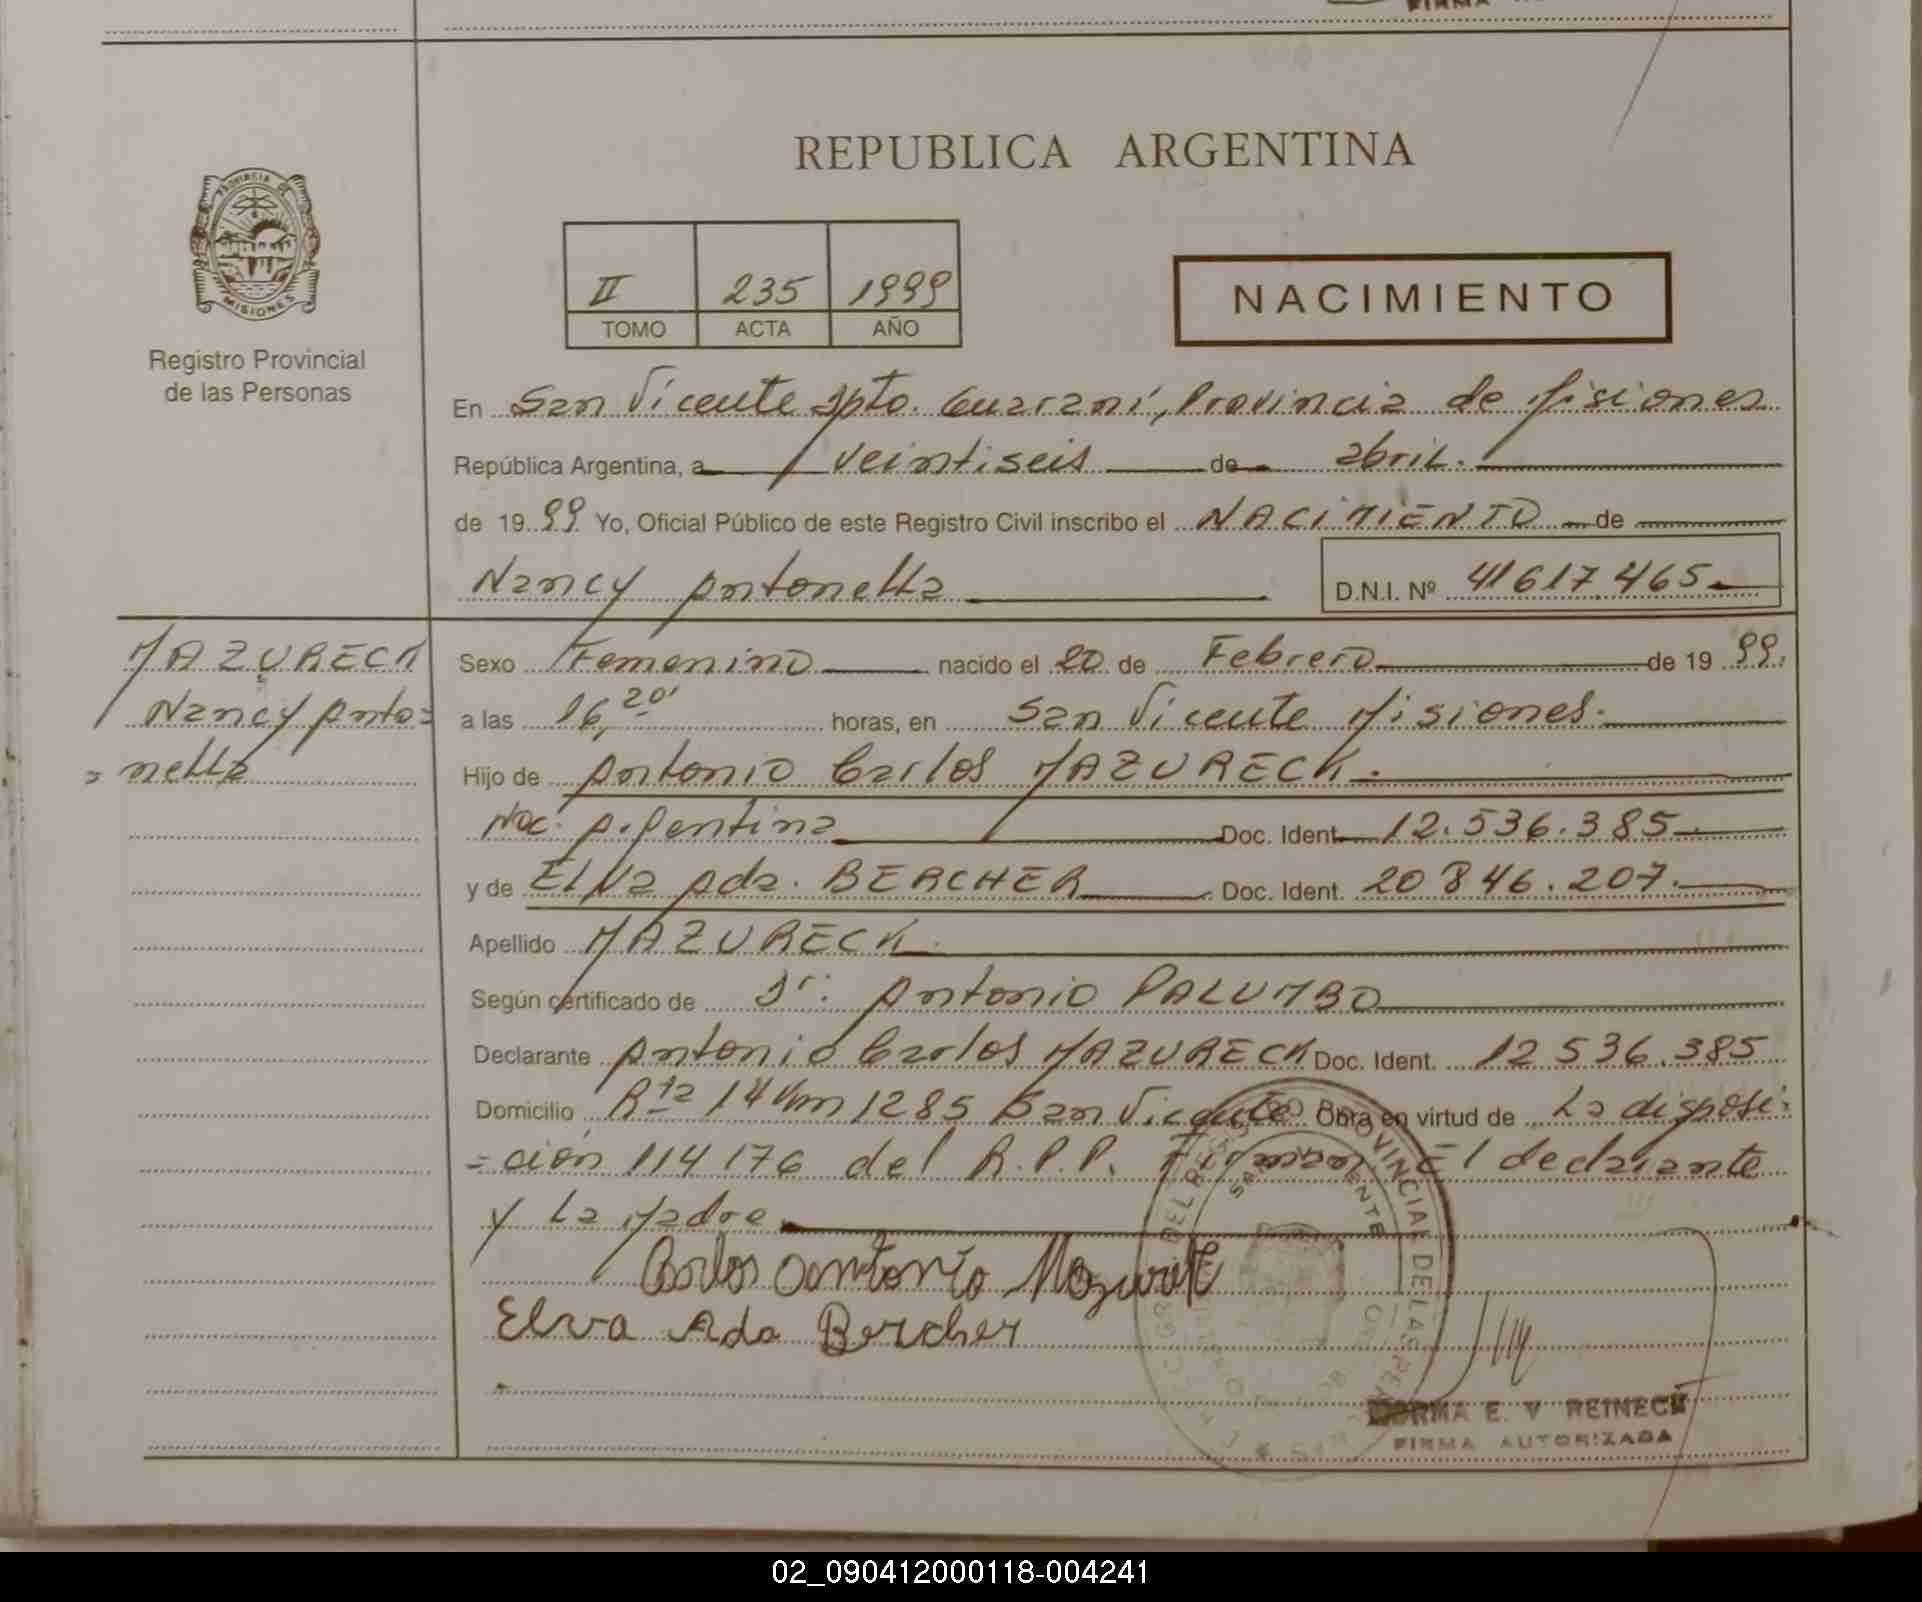 REPUBLICA ARGENTINA
PROVINCIA DE
MISIONES
Registro Provincial
de las Personas
II 235 1999
TOMO ACTA AÑO
NACIMIENTO
En San Vicente Dpto. Guaraní, Provincia de Misiones
República Argentina, a veintiseis de abril.
de 19 99 Yo, Oficial Público de este Registro Civil inscribo el NACIMIENTO de
Nancy Antonella D.N.I. Nº 41617.465
MAZURECK
Nancy Anto=
=nella
Sexo Femenino nacido el 20 de Febrero de 19 99.
a las 16,20' horas, en San Vicente Misiones.
Hijo de Antonio Carlos MAZURECK.
Nac. Argentina Doc. Ident. 12.536.385
y de Elva Ada. BERCHER Doc. Ident. 20846.207.
Apellido MAZURECK.
Según certificado de Dr. Antonio PALUMBO
Declarante Antonio Carlos MAZURECK Doc. Ident. 12536.385
Domicilio Rta 14 Km 1285 San Vicente Obra en virtud de La disposi=
=ción 114176 del R.P.P. Firman El declarante
y La Madre
Carlos Antonio
Elva Ada Bercher
NORMA E. V REINECK
FIRMA AUTORIZADA
02_090412000118-004241